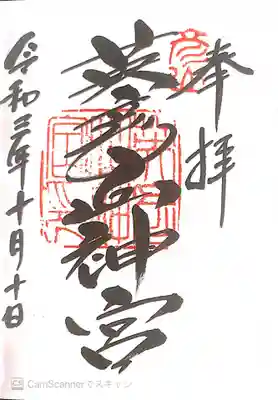 奉拝
英彦山神宮
令和三年十月十日
CS CamScannerでスキャン